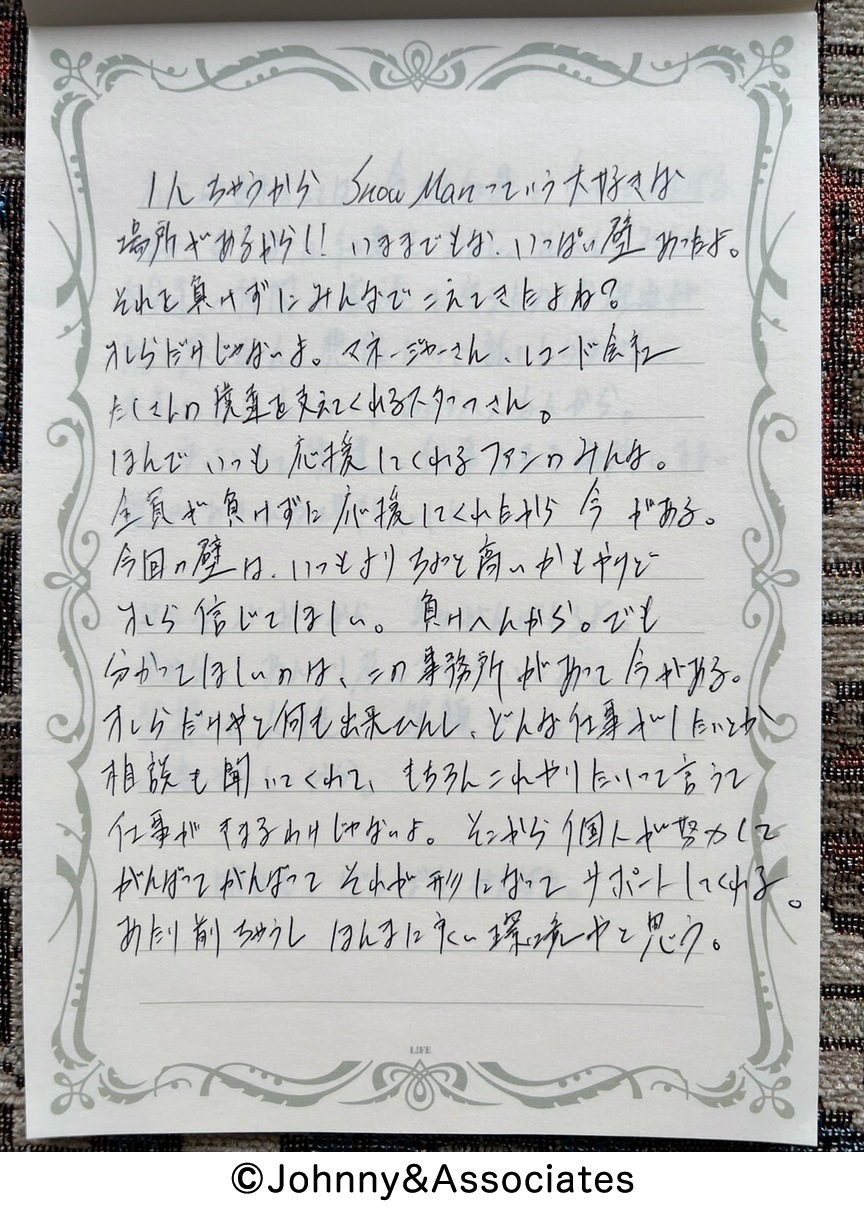 1人ちゃうから Snow Manっていう大好きな
場所があるからし! いままでもな、いっぱい壁あったよ。
それを負けずにみんなでこえてきたよね?
オレらだけじゃないよ。マネージャーさん、レコード会社
たくさんの後輩を支えてくれるスタッフさん。
ほんでいつも応援してくれるファンのみんな。
全員が負けずに応援してくれたから今がある。
今回の壁は、いつもよりちょっと高いかもやけど
オレら信じてほしい。負けへんから。でも
分かってほしいのは、この事務所があって今がある。
オレらだけやと何も出来ひんし、どんな仕事がしたいとか
相談も聞いてくれて、もちろんこれやりたいって言うて
仕事がきまるわけじゃないよ。そこから個人が努力して
がんばってがんばってそれが形になってサポートしてくれる。
あたり前ちゃうしほんまに良い環境やと思う。
LIFE
©Johnny&Associates